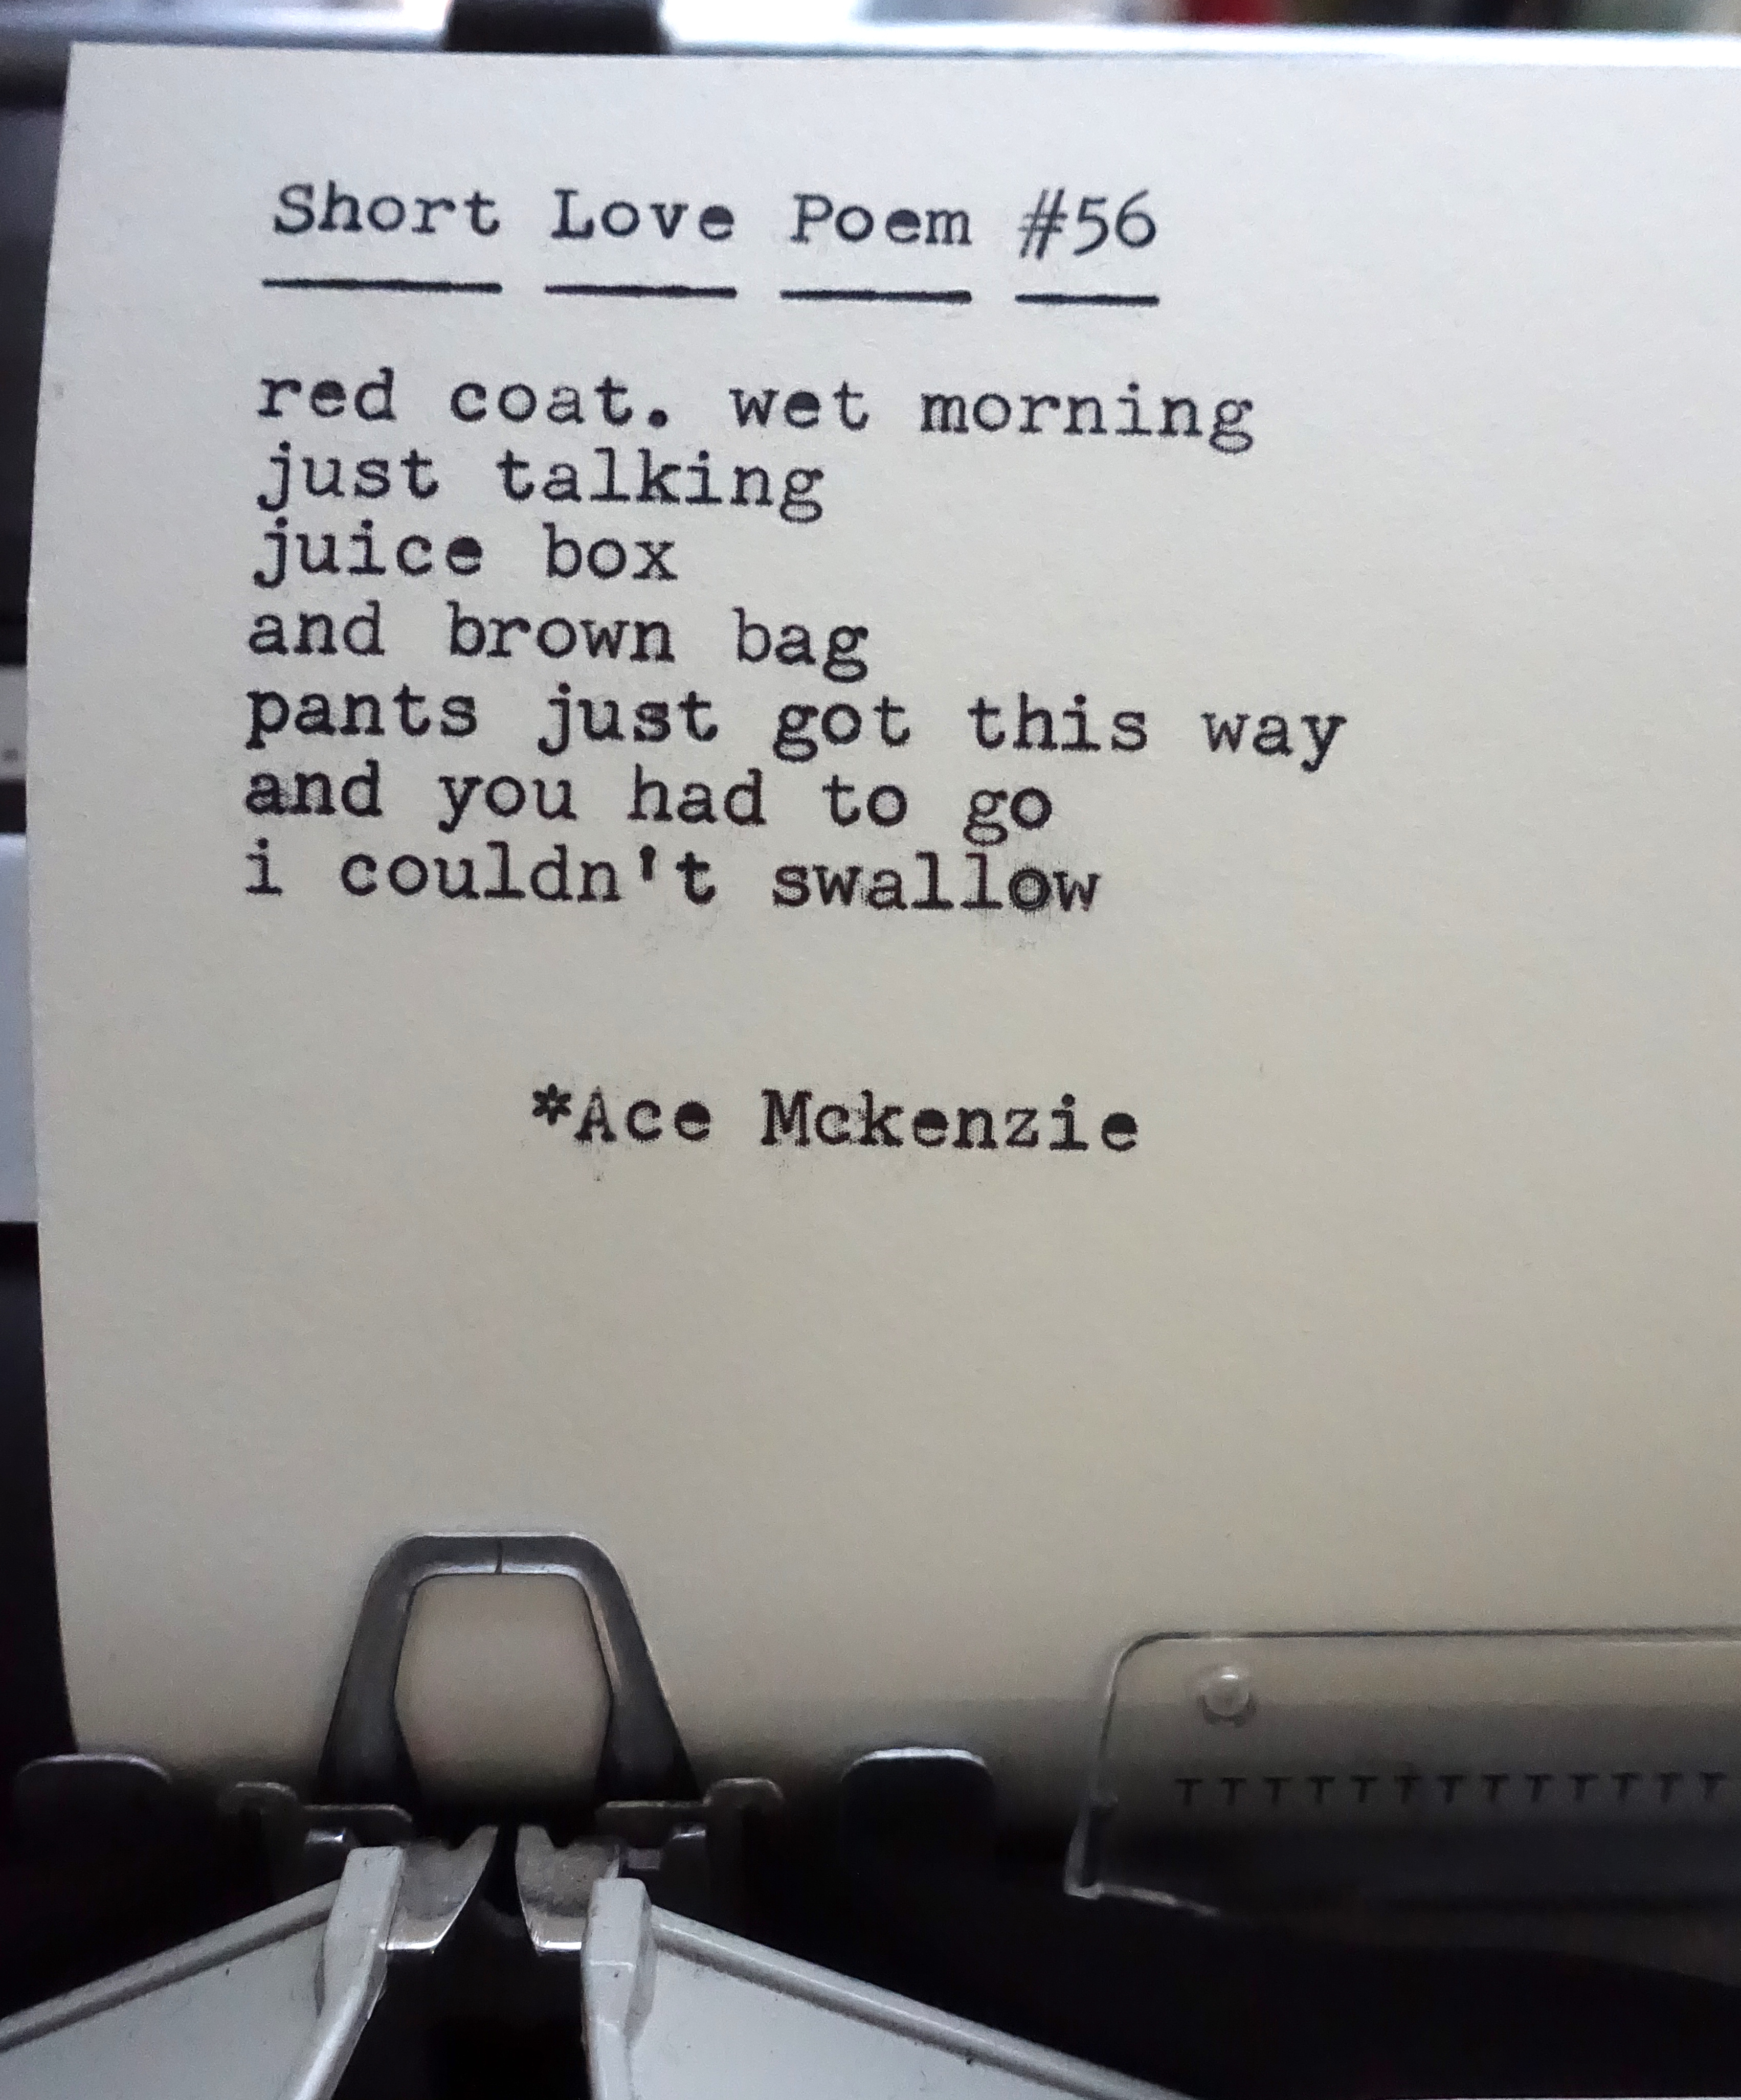 Short Love Poem #56
red coat. wet morning
just talking
juice box
and brown bag
pants just got this way
and you had to go
i couldn't swallow
*Ace Mckenzie